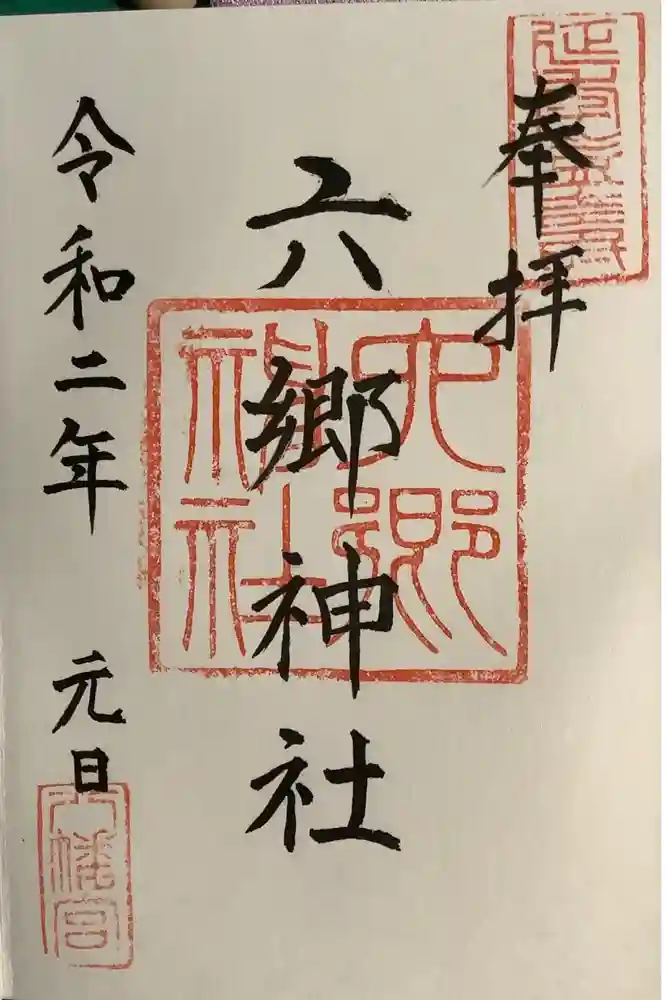 奉拝
六郷神社
六郷神社
令和二年 元日
八幡宮